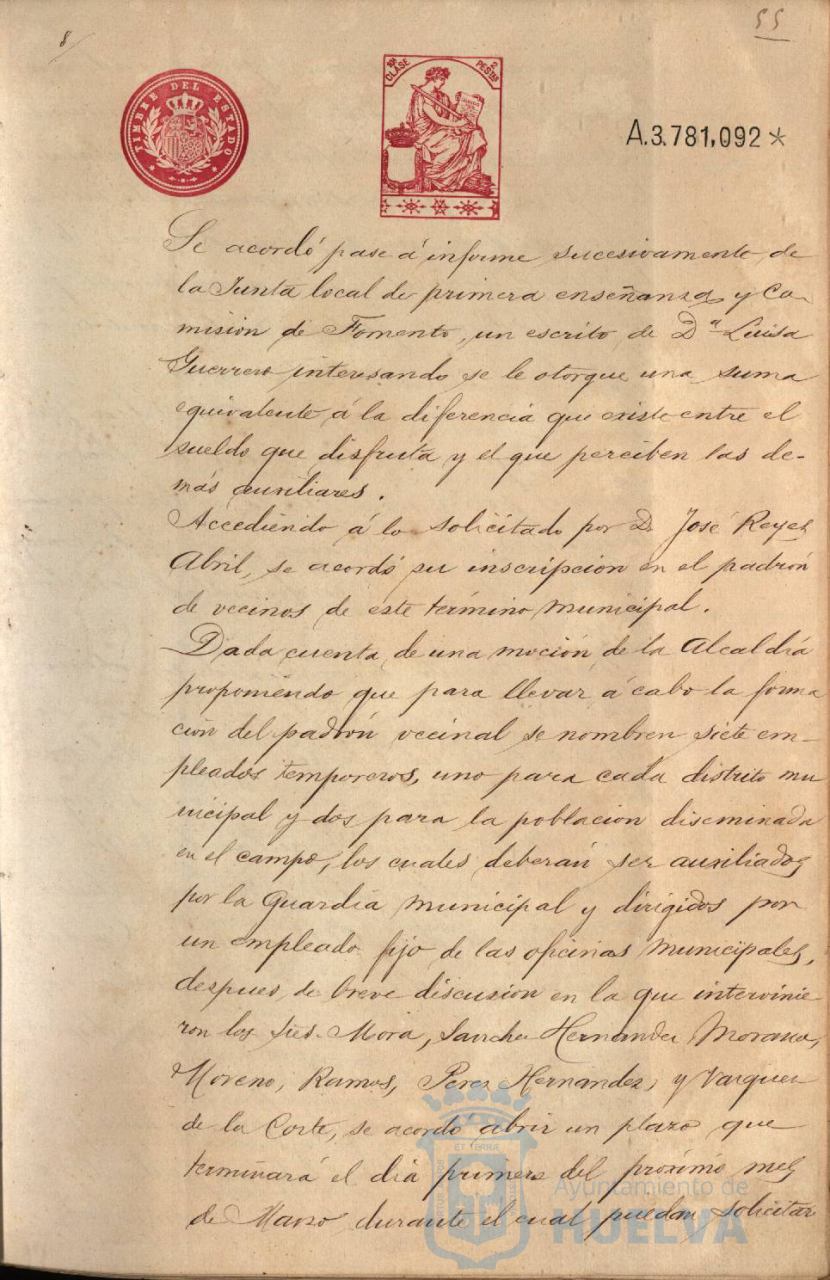 8/
55
TIMBRE DEL ESTADO
10ª CLASE
2 PESTAS
A.3.781,092*
Se acordó pase á informe sucesivamente de
la Junta local de primera enseñanza y Co-
misión de Fomento, un escrito de Dª Luisa
Guerrero interesando se le otorgue una suma
equivalente á la diferencia que existe entre el
sueldo que disfruta y el que perciben las de-
más auxiliares.
Accediendo á lo solicitado por D. José Reyes
Abril, se acordó su inscripción en el padrón
de vecinos de este término municipal.
Dada cuenta de una moción de la Alcaldía
proponiendo que para llevar á cabo la forma
ción del padrón vecinal se nombren siete em-
pleados temporeros, uno para cada distrito mu
nicipal y dos para la población diseminada
en el campo, los cuales deberán ser auxiliados
por la Guardia municipal y dirigidos por
un empleado fijo de las oficinas municipales,
despues de breve discusión en la que intervinie
ron los Sres. Mora, Sanchez Hernandez,
Moreno, Ramos, Perez Hernandez, y Vazquez
de la Corte, se acordó abrir un plazo que
terminará el día primero del próximo mes
de Marzo durante el cual puedan solicitar
Ayuntamiento de
HUELVA